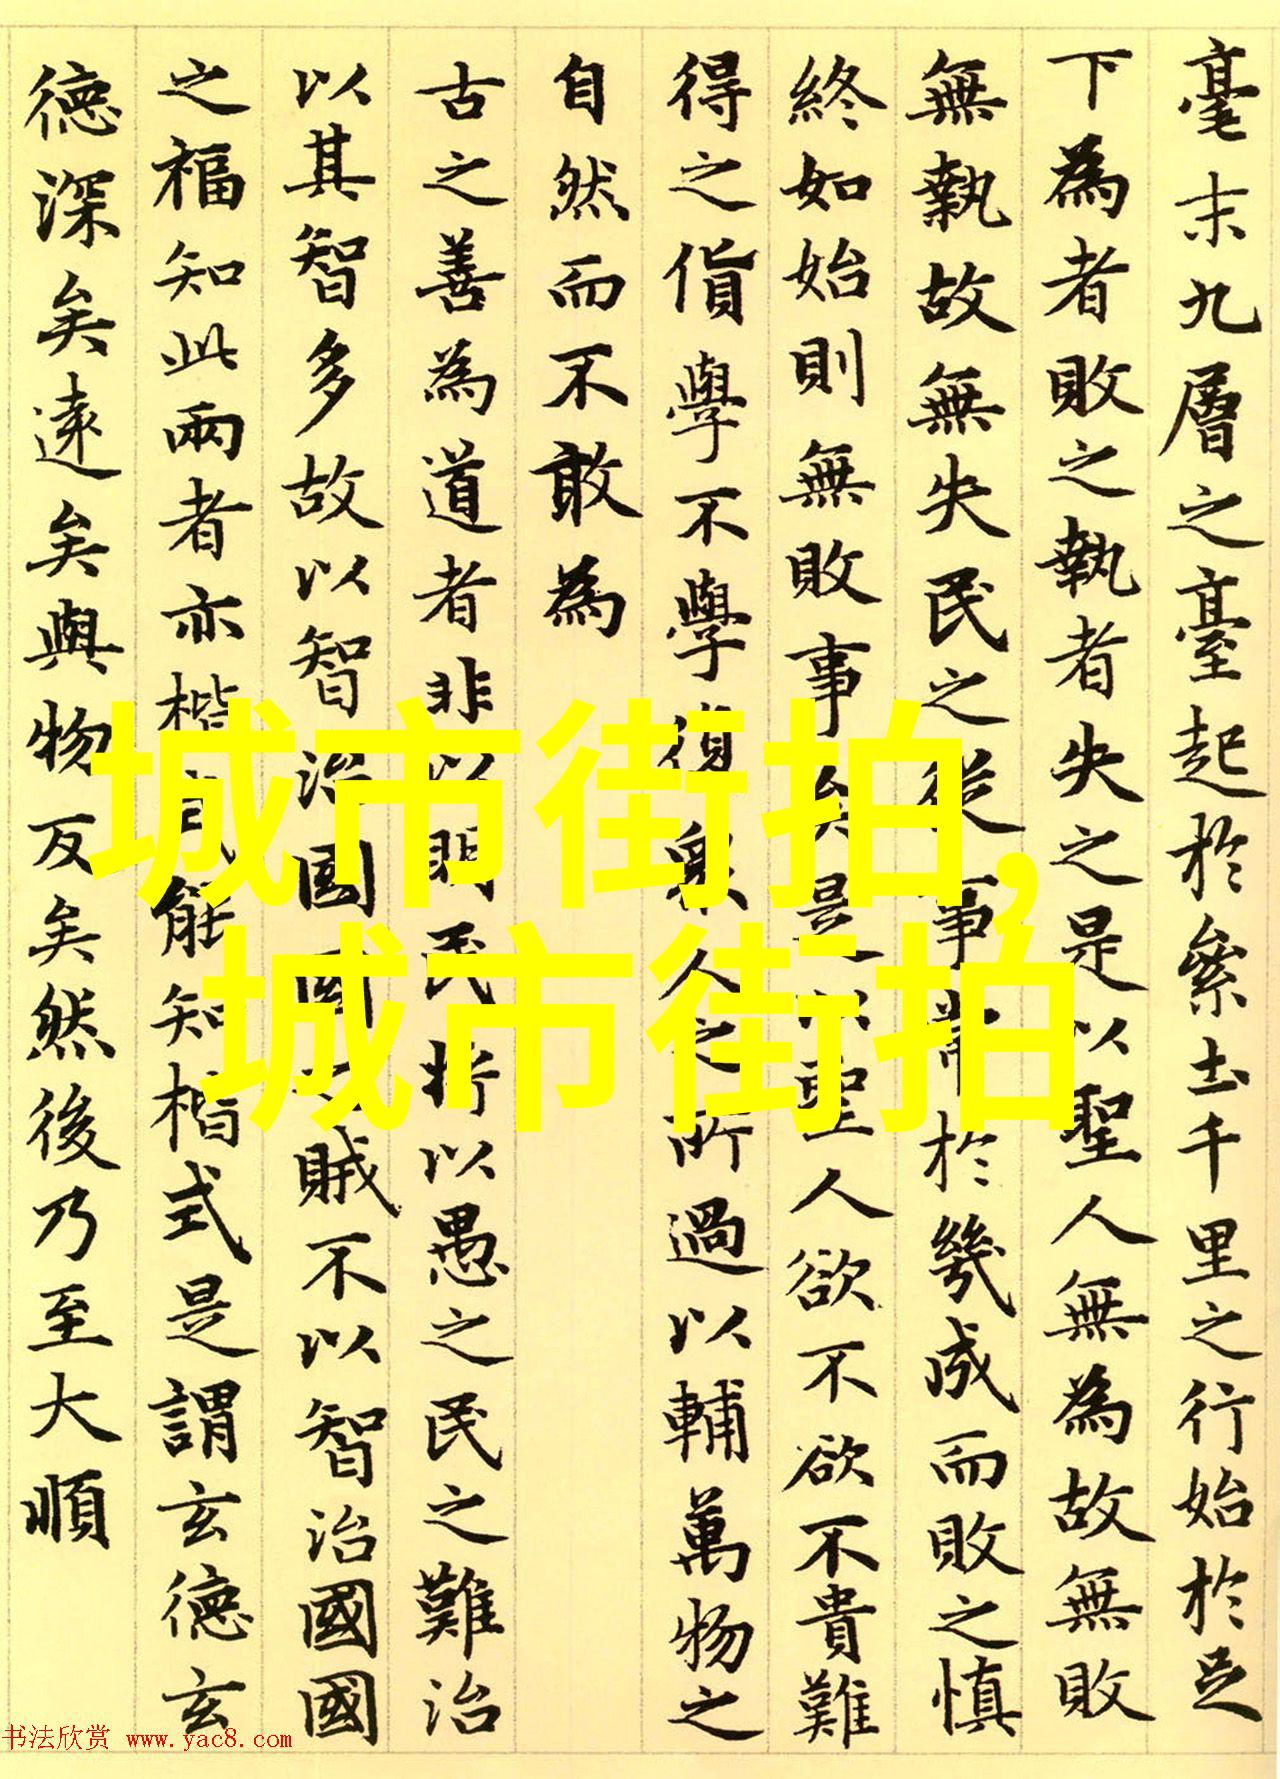 毫末九層之臺起於絫土千里之行始於足
下為者敗之執者失之是以聖人無為故無敗
無執故無失民之從事常於幾成而敗之慎
終如始則無敗事矣是以聖人欲不欲不貴難
得之貨學不學復眾人之所過以輔萬物之
自然而不敢為
古之善為道者非以明民將以愚之民之難治
以其智多故以智治國國之賊不以智治國國
之福知此兩者亦楷式能知楷式是謂玄德玄
德深矣遠矣與物反矣然後乃至大順
城市街拍,
城市街拍
书法欣赏 www.yac8.com